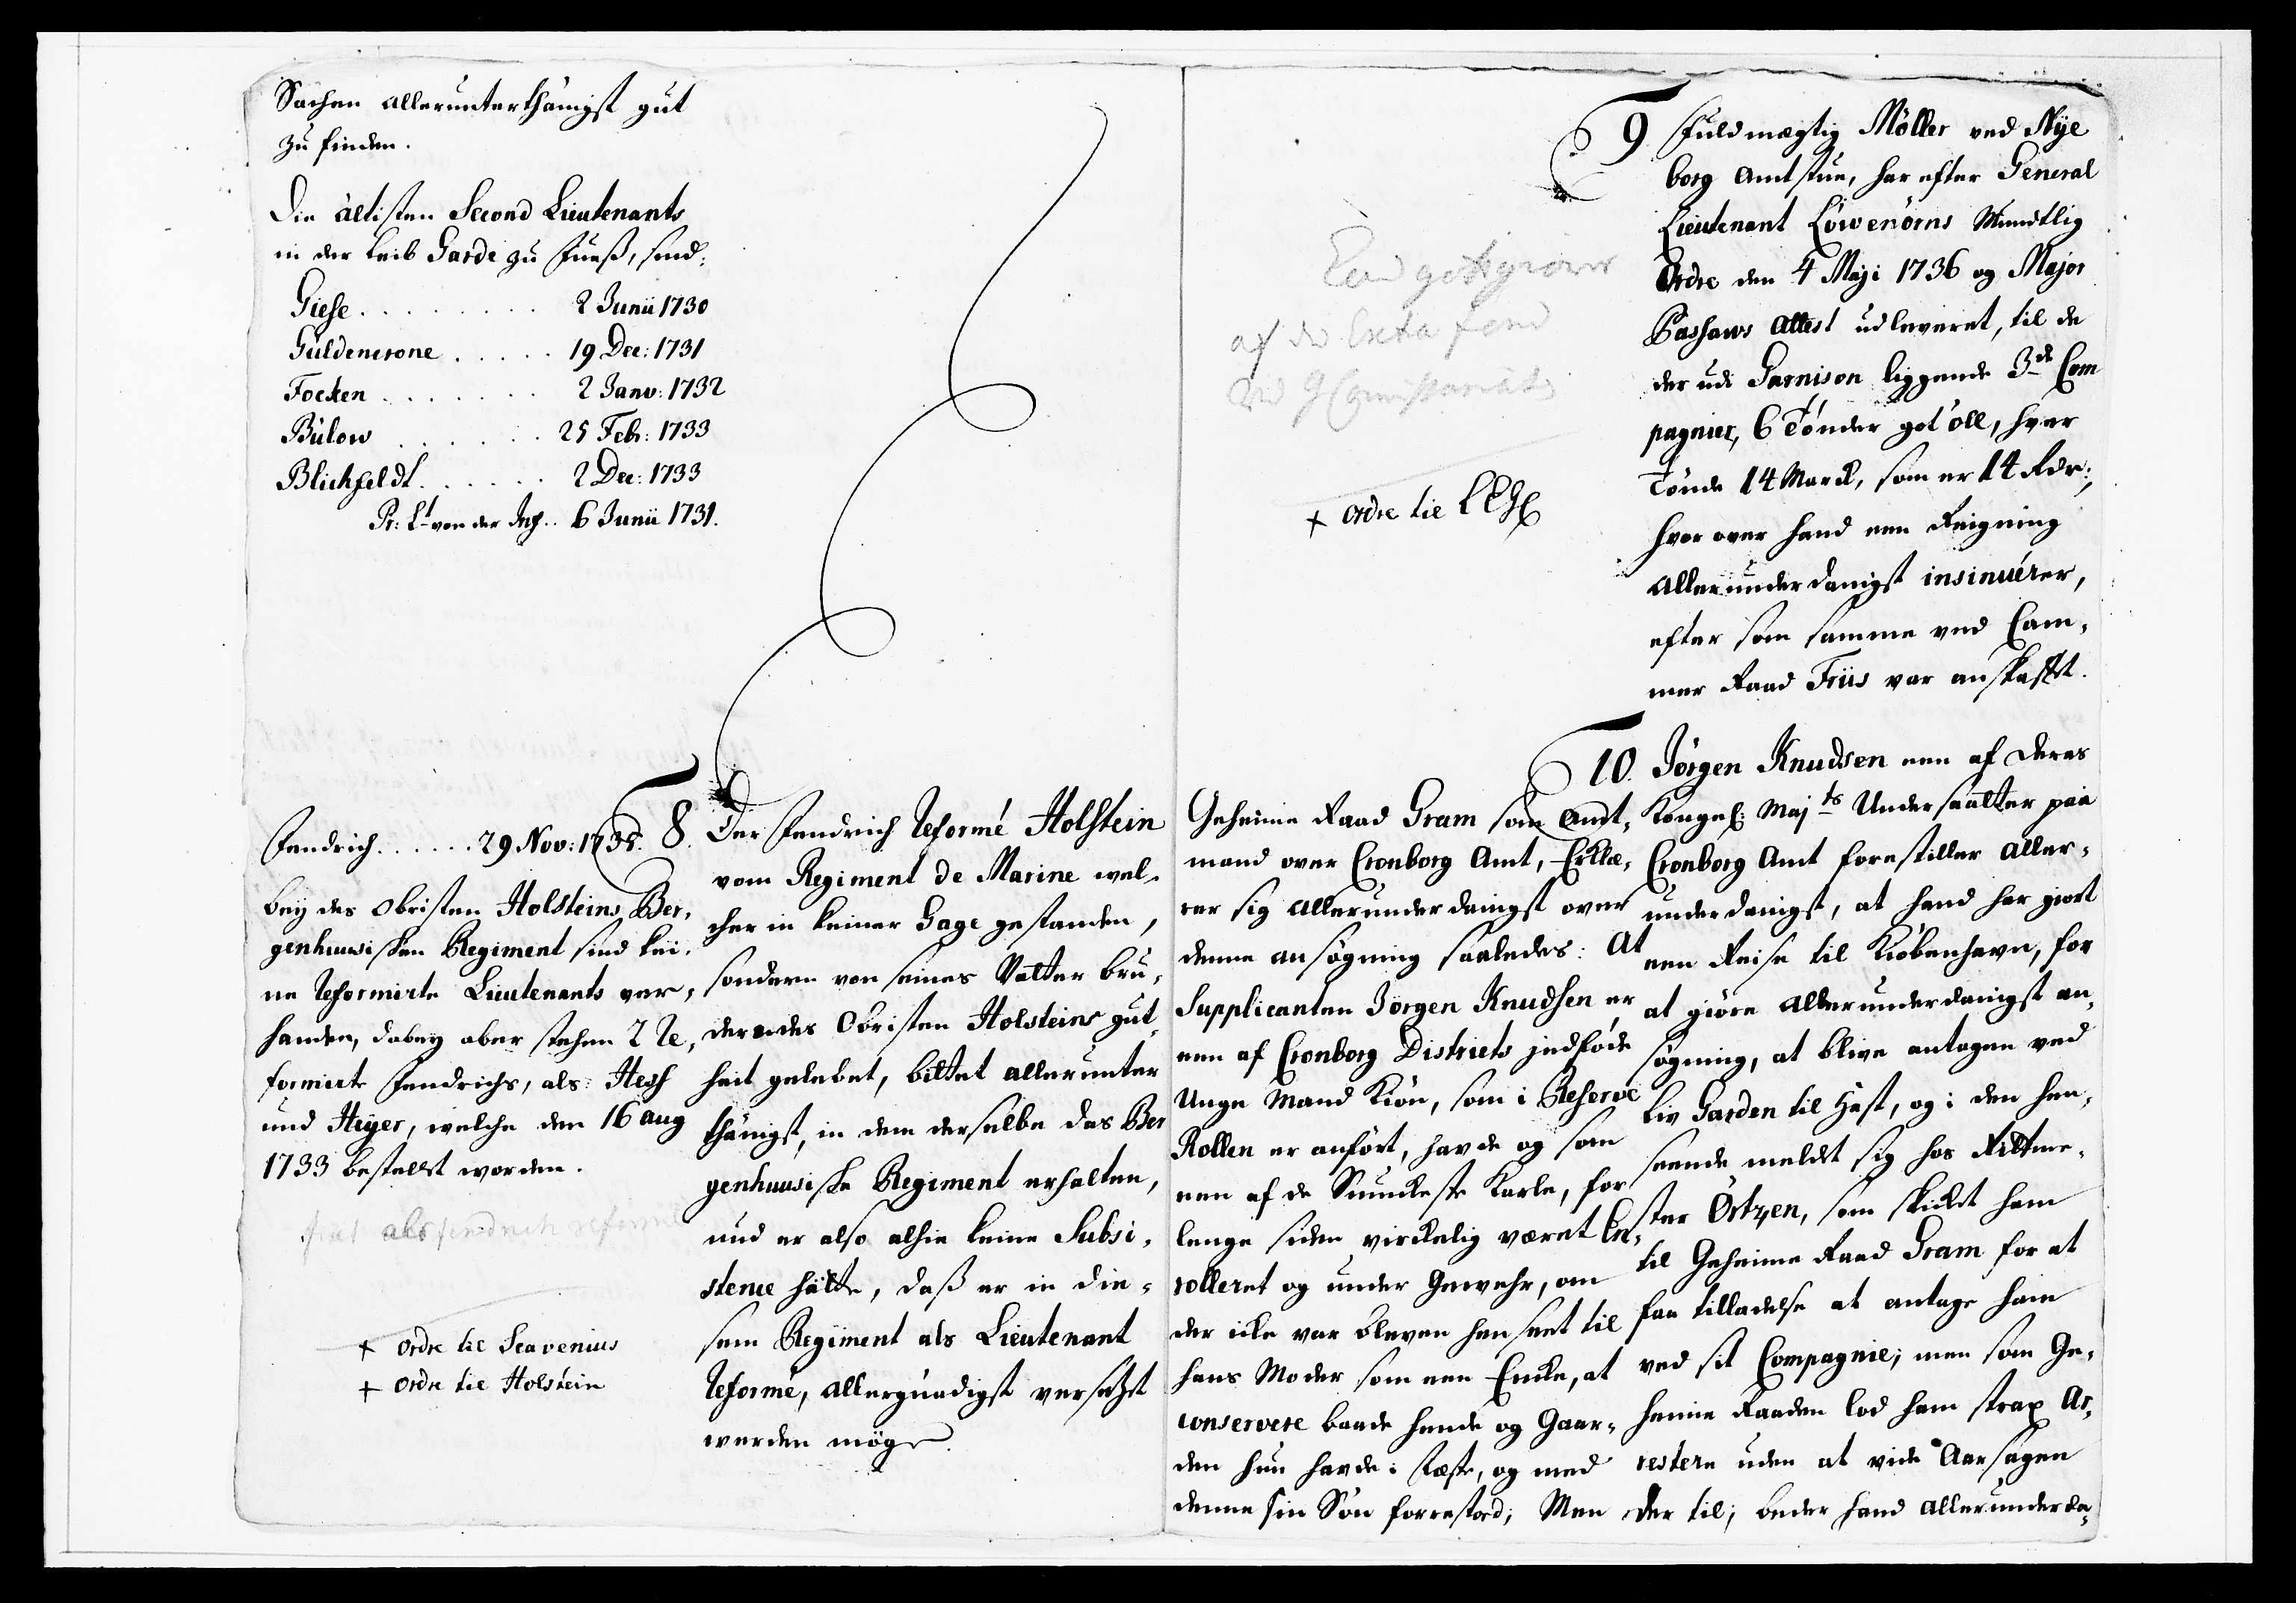 Sachen allerunterthänigst gut
zu finden.
Die ältisten Second Lieutenants
in der Leib Garde zu Fueß, sind:
Giese . . . . . . . . 2 Junii 1730
Güldencrone . . . . . 19 Dec: 1731
Focken . . . . . . . 2 Janv: 1732
Bülow . . . . . . 25 Febr: 1733
Blichfeldt . . . . . . 2 Dec: 1733
Pr: Lt von der Inf. . 6 Junii 1731.
Fendrich . . . . . . 29 Nov: 1735.
bey des Obristen Holsteins Ber-
genhuusischen Regiment sind kei-
ne Reformirte Lieutenants ver-
handen, dabey aber stehen 2 Re-
formirte Fendrichs, als: Hess
und Heyer, welche den 16 aug
1733 bestellt worden.
als fendrich reformé
+ Ordre til Scavenius
+ Ordre til Holstein
8. Der Fendrich Reformé Holstein
vom Regiment de Marine wel-
cher in keiner Gage gestanden,
sondern von seines Vatter bru-
der des Obristen Holsteins gut-
heit gelebet, bittet allerunter
thänigst, in dem derselbe das Ber
genhuusiske Regiment erhalten,
und er also alhie keine Subsi-
stence hätte, daß er in die-
sem Regiment als Lieutenant
Reformé, allergnädigst versetzt
werden möge.
9 Fuldmægtig Möller ved Nye
borg Amtstue, har efter General
Lieutenant Löwenörns Mundtlig
Ordre den 4 Maji 1736 og Major
Bassaws Attest udleveret, til de
der udi Garnison liggende 3de Com
pagnier, 6 Tönder got öll, hver
Tönde 14 Marck, som er 14 Rdr:,
hvor over hand een Reigning
allerunderdanigst insinuérer,
efter som samme ved Cam-
mer Raad Friis var anskaffet.
af de Extra fond
ved G Comissariatet
+ Ordre til
10. Jörgen Knudsen een af Deres
Kongel: Majts Undersaatter paa
Cronborg Amt forestiller aller-
underdanigst, at hand har giort
een Reise til Kiöbenhavn, for
at giöre allerunderdanigst an-
søgning, at blive antagen ved
Liv Garden til Hest, og i den hen-
seende meldt sig hos Rittme-
ster Örtzen, som skickt ham
til Geheime Raad Gram for at
faa tilladelse at antage ham
ved sit Compagnie; men som Ge-
heime Raaden lod ham strax Ar-
restere uden at vide Aarsagen
der til; beder hand allerunderda-
Geheime Raad Gram som Amt-
mand over Cronborg Amt, Erklæ-
rer sig allerunderdanigst over
denne ansøgning saaledes: At
Supplicanten Jörgen Knudsen er
een af Cronborg Districts indföde
Unge Mand Kiön, som i Reserve
Rollen er anfört, havde og som
een af de Smuckeste Karle, for
lenge siden virckelig været En-
rolleret og under Gewehr, om
der icke var bleven hen seet til
hans Moder som een Encke, at
conservere baade hende og Gaar-
den hun havde i Fæste, og med
denne sin Sön forrestod; Men